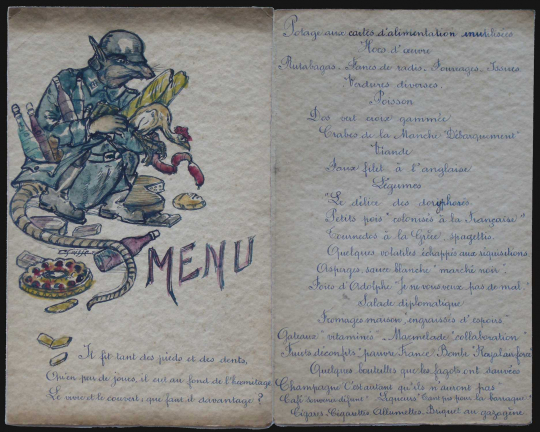 MENU
Il fit tant des pieds et des dents,
Qu'en peu de jours, il eut au fond de l'hermitage
Le vivre et le couvert, que faut-il davantage ?
Potage aux cartes d'alimentation inutilisées
Hors d'œuvre
Rutabagas. Fanes de radis. Fourrages. Issues
Verdures diverses.
Poisson
Dos vert croix gammée
Crabes de la Manche "Débarquement"
Viande
Faux filet à l'anglaise
Légumes
"Le délice des doryphores"
Petits pois "colonisés à la Française"
à la Grèce spagettis.
Quelques volatiles échappés aux réquisitions
Asperges, sauce blanche "marché noir"
Foies d'Adolphe "Je ne vous veux pas de mal"
Salade diplomatique
Fromages maison, engraissés d'espoirs
Gateaux vitaminés - Marmelade "collaboration"
Fruits déconfits "pauvre France" Bombe Royal air force
Quelques bouteilles que les fagots ont sauvées
Champagne "C'est autant qu'ils n'auront pas"
Café "souvenir défunt" Liqueurs "Tant pis pour la barbaque"
Cigares Cigarettes Allumettes. Briquet au gazogène